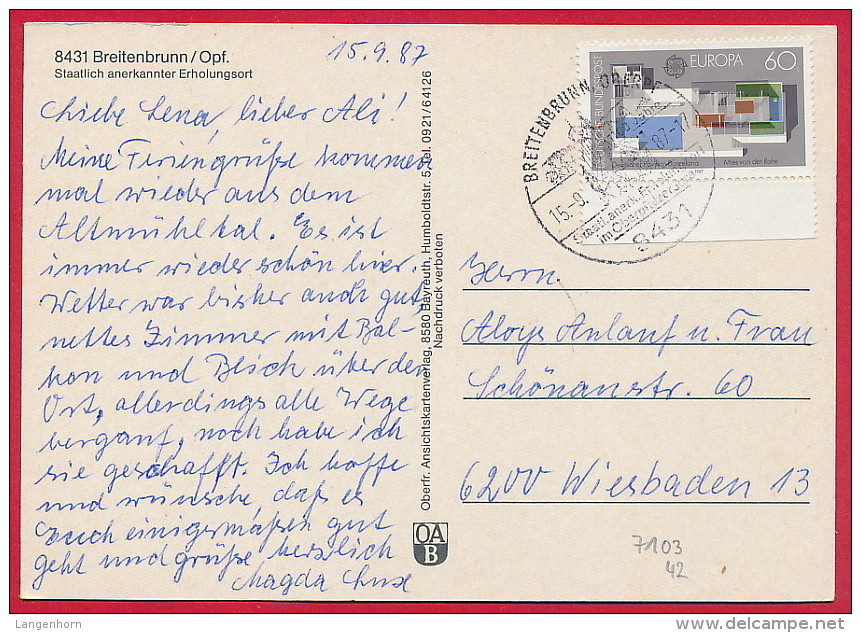 8431 Breitenbrunn/Opf.
Staatlich anerkannter Erholungsort
15.9.87
Liebe Lena, lieber Ali!
Meine Feriengrüße kommen
mal wieder aus dem
Altmühltal. Es ist
immer wieder schön hier.
Wetter war bisher auch gut,
nettes Zimmer mit Bal-
kon und Blick über den
Ort, allerdings alle Wege
bergauf, noch habe ich
sie geschafft. Ich hoffe
und wünsche, daß es
Euch einigermaßen gut
geht und grüße herzlich
Magda
Oberfr. Ansichtskartenverlag, 8580 Bayreuth, Humboldtstr. 5, Tel. 0921/64126
Nachdruck verboten
OA
B
DEUTSCHE BUNDESPOST
EUROPA 60
Mies van der Rohe
BREITENBRUNN, OBERPF
15.-9.
87-17
Staatl. anerk. Erholungsort
im Oberpfälzer Jura
8431
Herrn
Aloys Anlauf u. Frau
Schönaustr. 60
6200 Wiesbaden 13
7103
42
Langenhorn
delcampe.net